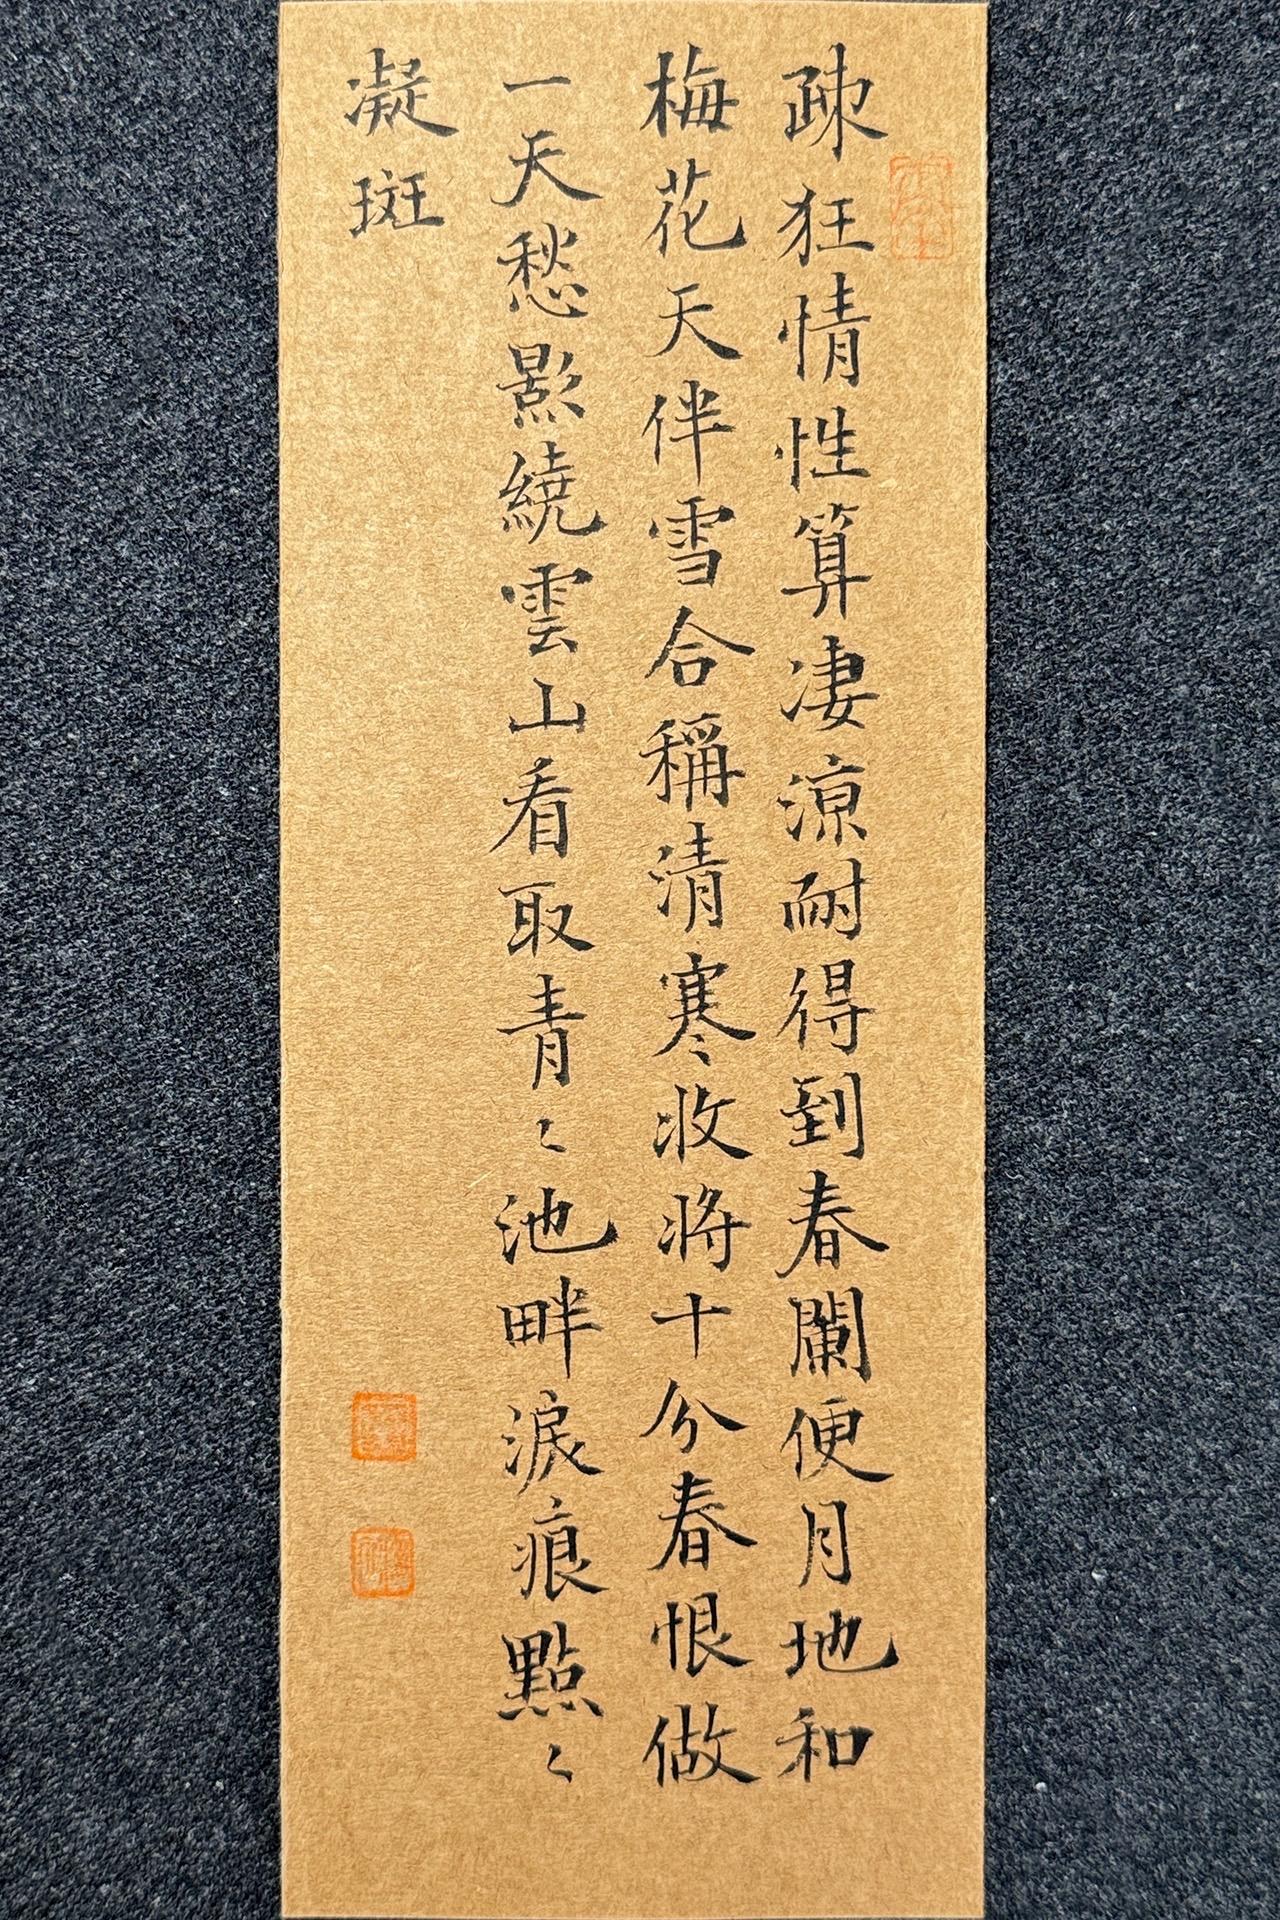 疎狂情性算凄涼耐得到春闌便月地和
梅花天伴雪合稱清寒收将十分春恨做
一天愁影繞雲山看取青〻池畔淚痕點〻
凝斑